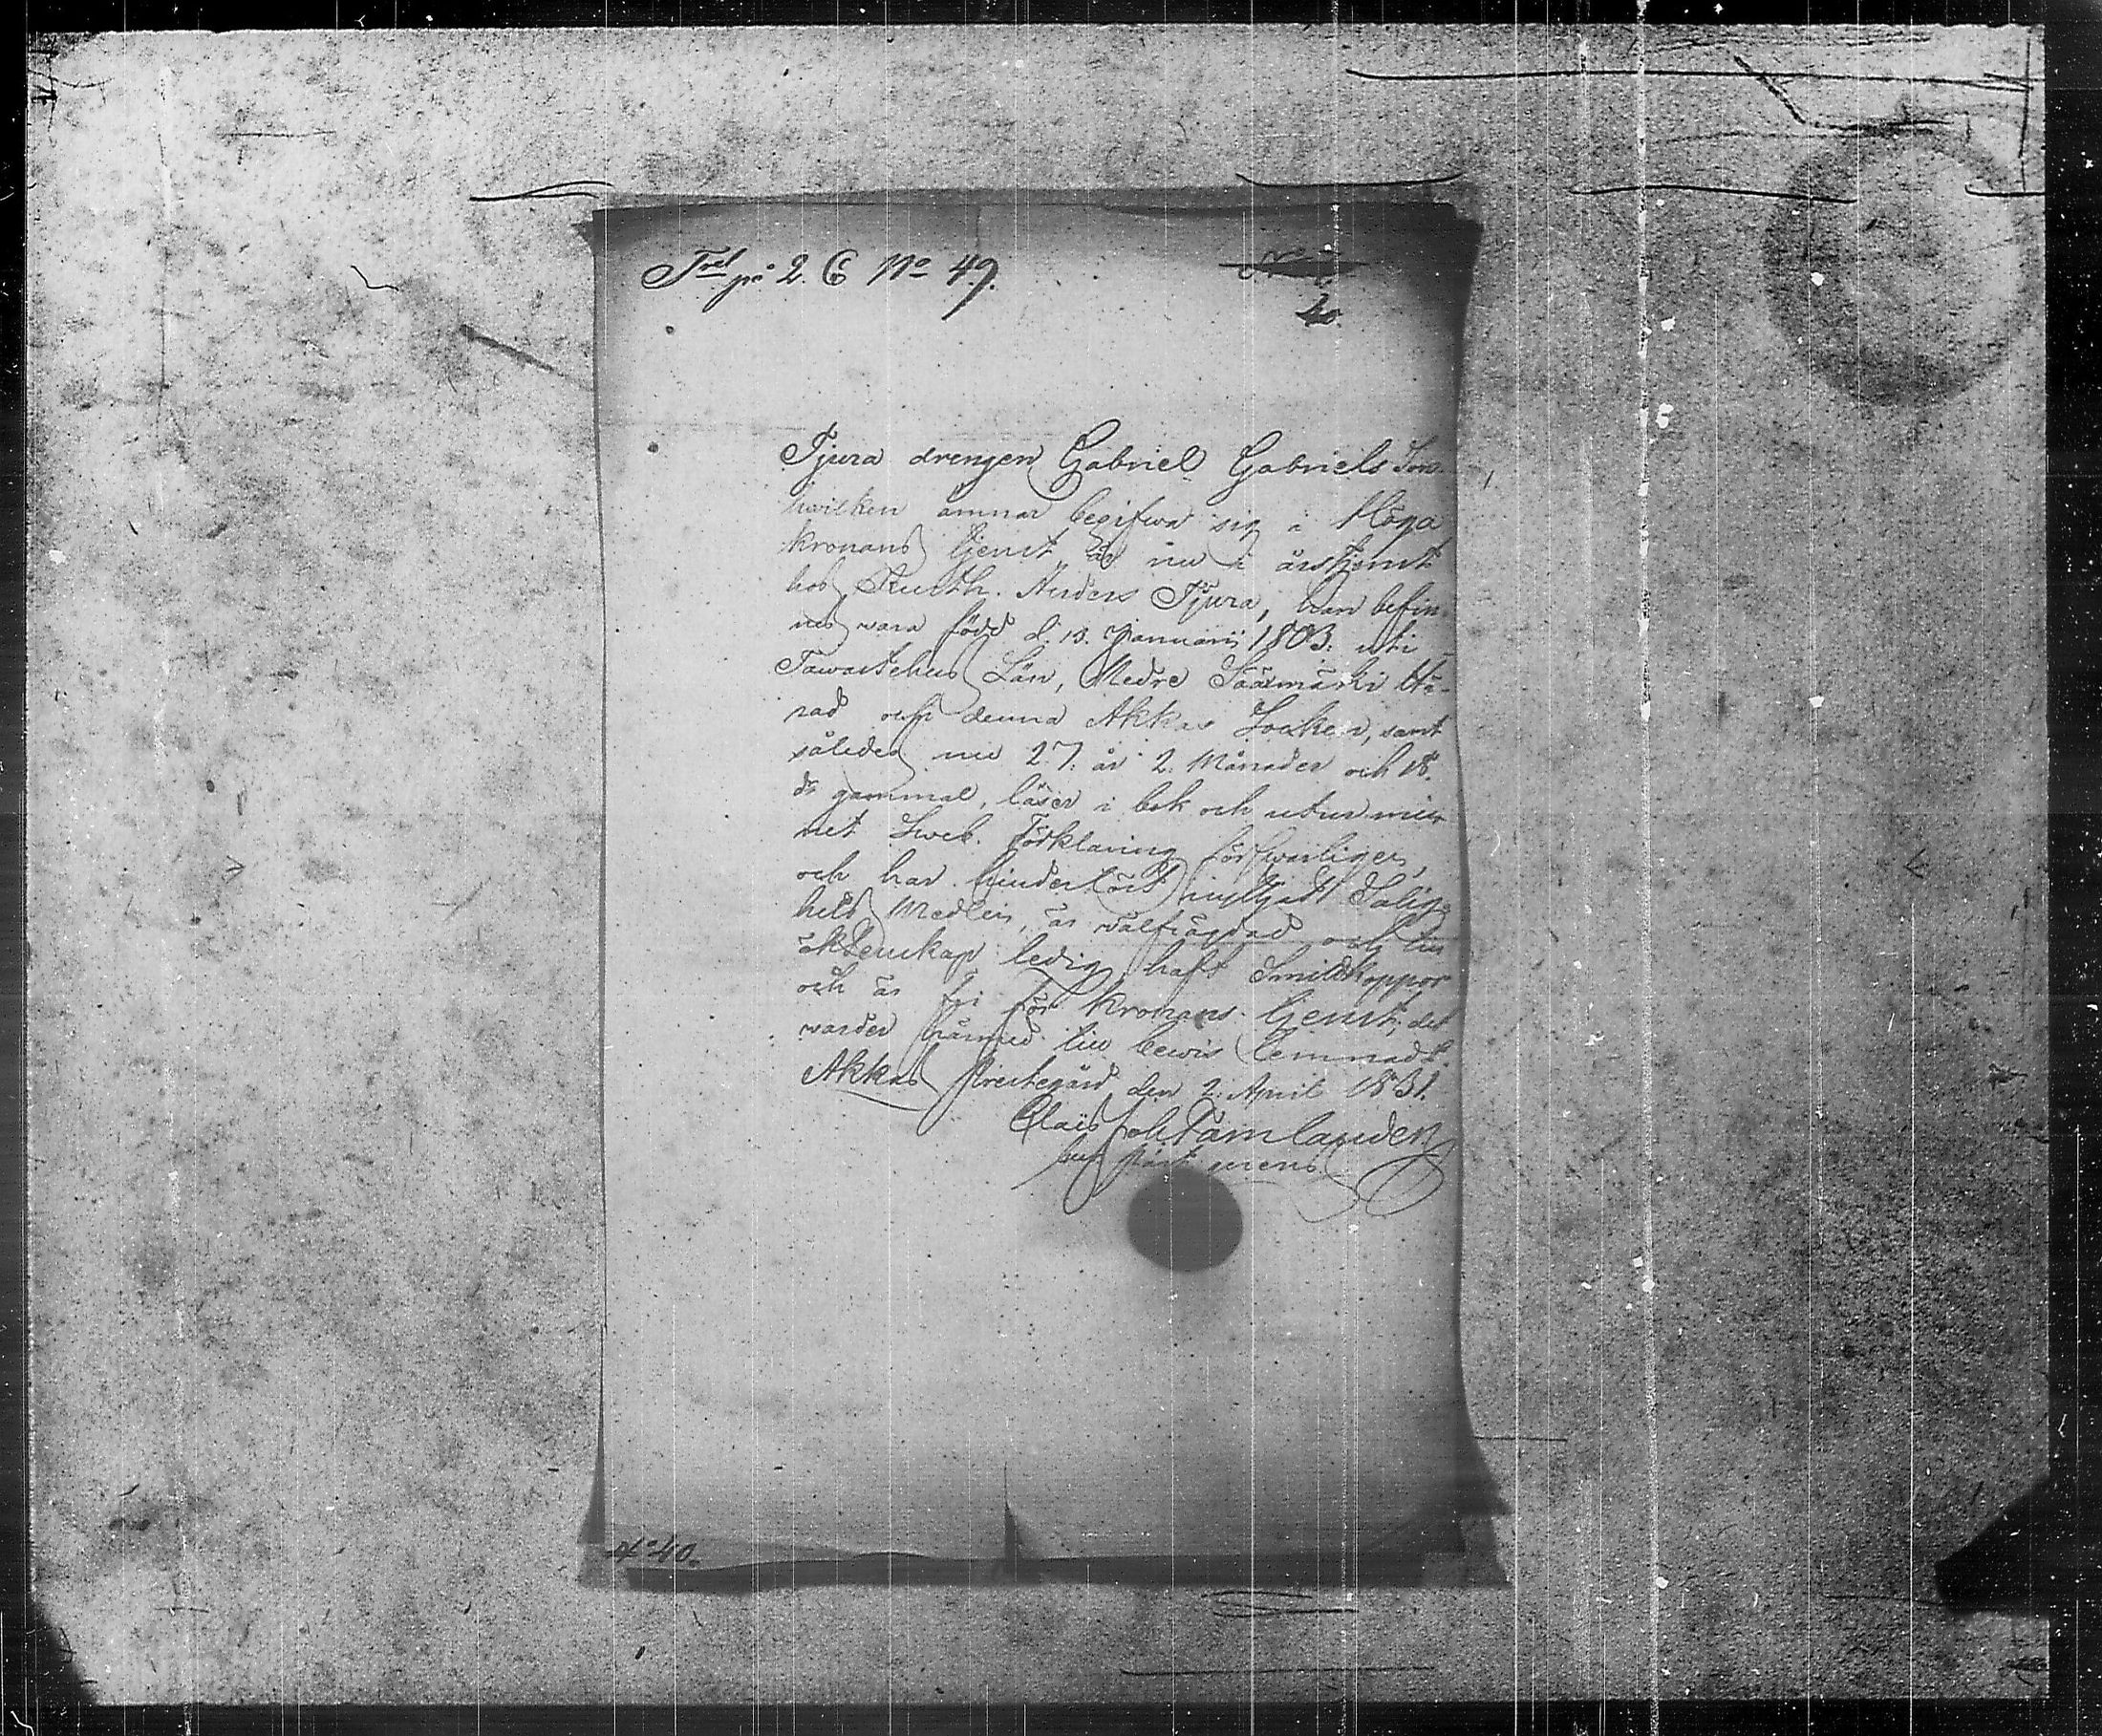 Töel på 2. C No 49.
40.
Tjura drengen Gabriel Gabriels Son
hwilken ämnar begifwa sig i Höga
kronans tjenst är nu i årstjenst
hos Rusth. Anders Tjura, han befin-
nes vara född d. 13. Januarii 1803. uti
Tawastehus Län, Nedre Sääxmäki Hä-
rad och denna Akkas Socken, samt
således nu 27. år 2. Månader och 18.
ds gammal, läser i bok och utur min
net Sweb. Förklaring förswarligen,
och har hinderlöst nyttjadt Salig-
hets Medlen, är wälfrägdad och till
äktenskap ledig, haft Smittkoppor
och är fri för kronans tjenst; det
warder härmed till bewis lemnadt.
Akkas Prestegård den 2. April 1831.
Claës Joh
past. gerens
No 40.